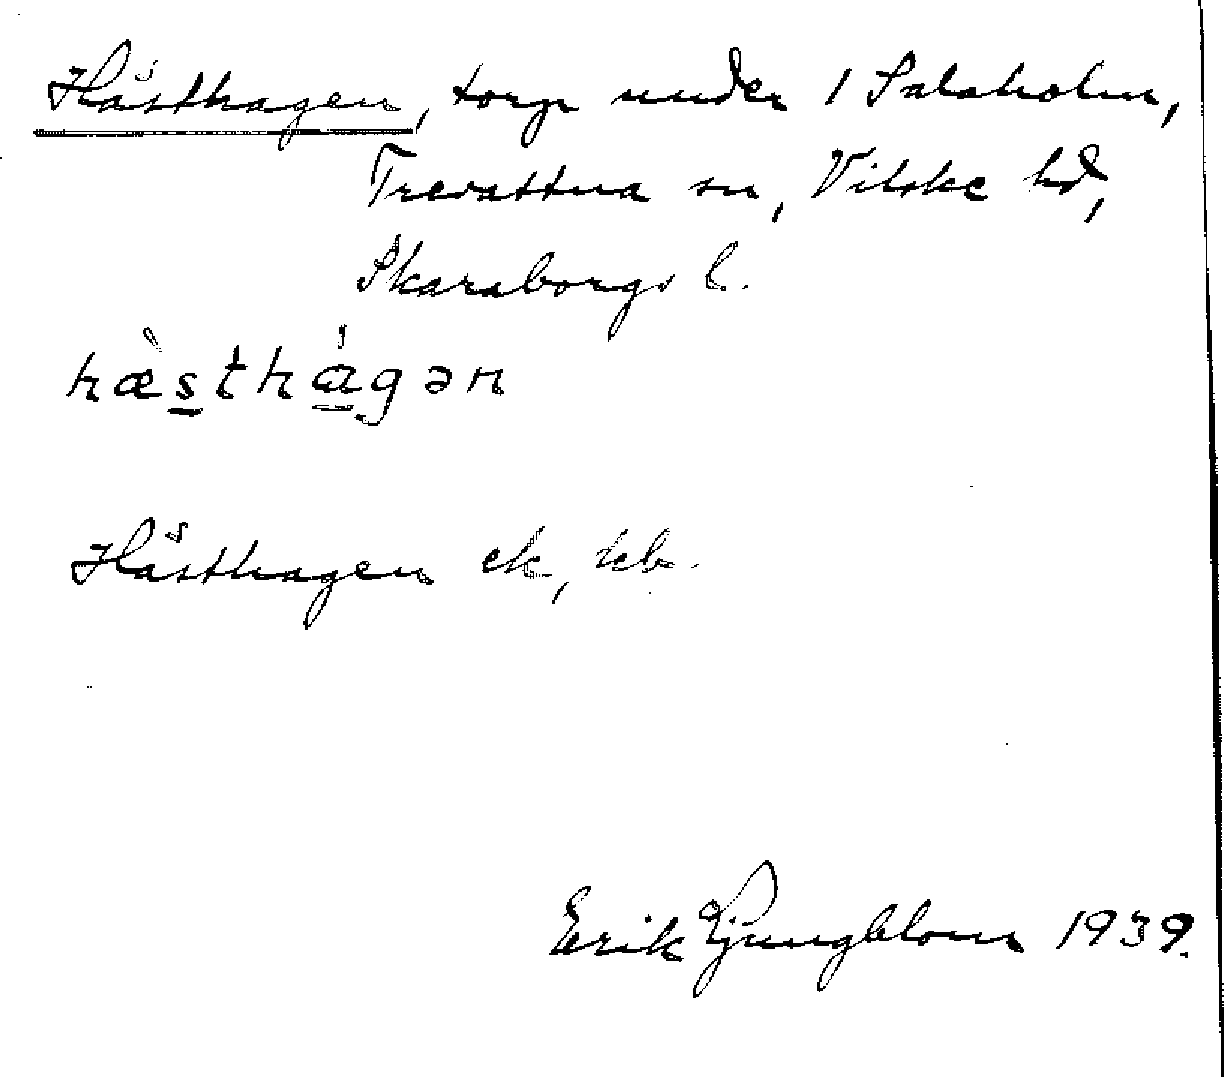 Hästhagen, torp under 1 Salaholm,
Trevattna sn, Vilske hd,
Skaraborgs l.
hæ̀sthágən
Hästhagen ek, kb.
Erik Ljungblom 1939.